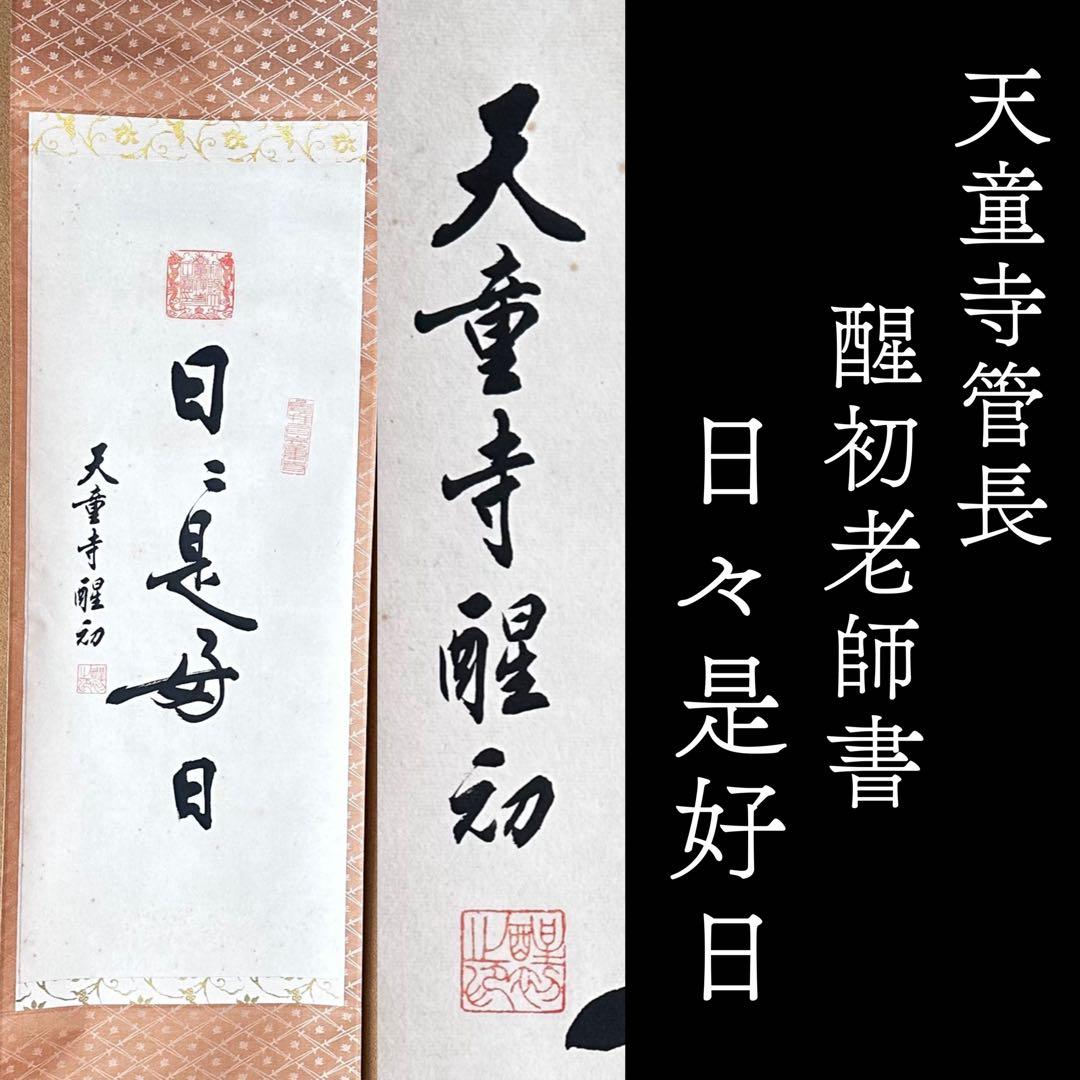 天童寺管長
醒初老師書
日々是好日
天童寺醒初
醒初
之印
日〻是好日
天童寺醒初